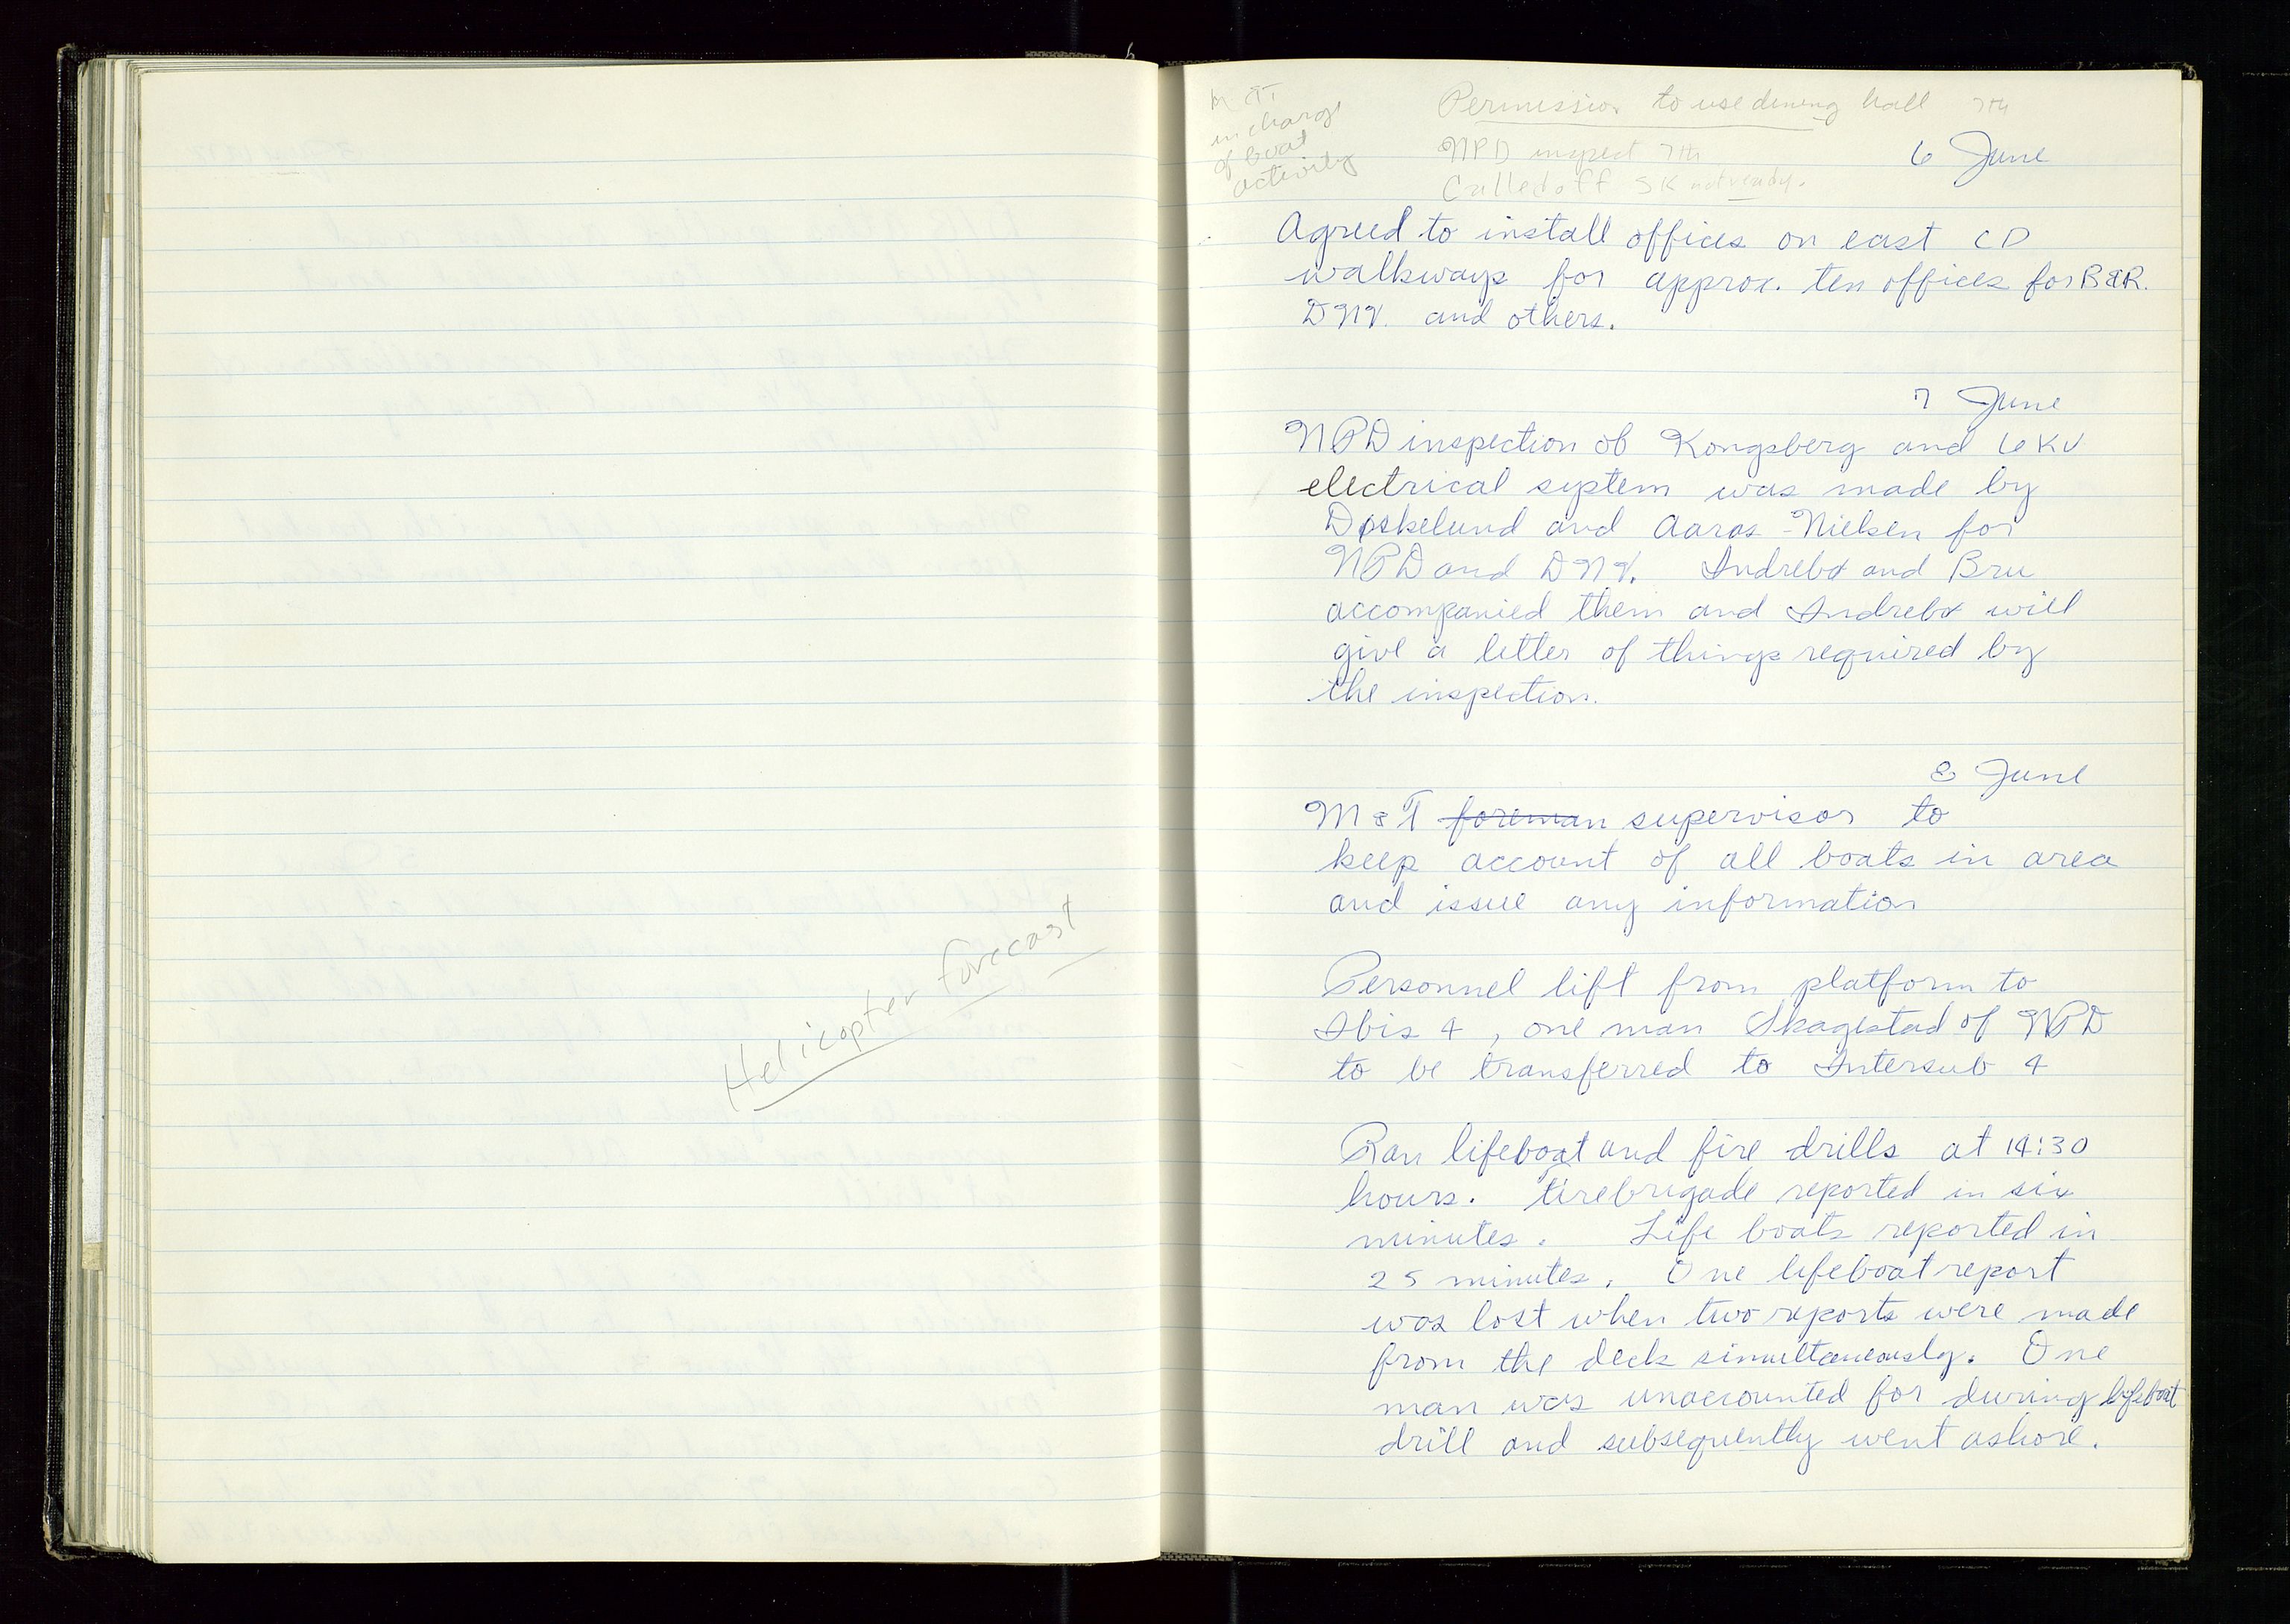 Helicopter forecast
in charge
of boat
activity
Permission to use dining hall 7th
NPD inspect 7th
Called off SK not ready.
6 June
Agreed to install offices on east CD
walkways for approx. ten offices for B&R.
DNV. and others.
7 June
NPD inspection of Kongsberg and 6 KV
electrical system was made by
Døskelund and Aaros-Nielsen for
NPD and DNV. Andrebø and Bru
accompanied them and Andrebø will
give a letter of things required by
the inspection.
8 June
M & T foreman supervisor to
keep account of all boats in area
and issue any information
Personnel lift from platform to
Ibis 4, one man Skagestad of NPD
to be transferred to Intersub 4
Ran lifeboat and fire drills at 14:30
hours. Firebrigade reported in six
minutes. Life boats reported in
25 minutes. One lifeboat report
was lost when two reports were made
from the deck simultaneously. One
man was unaccounted for during lifeboat
drill and subsequently went ashore.